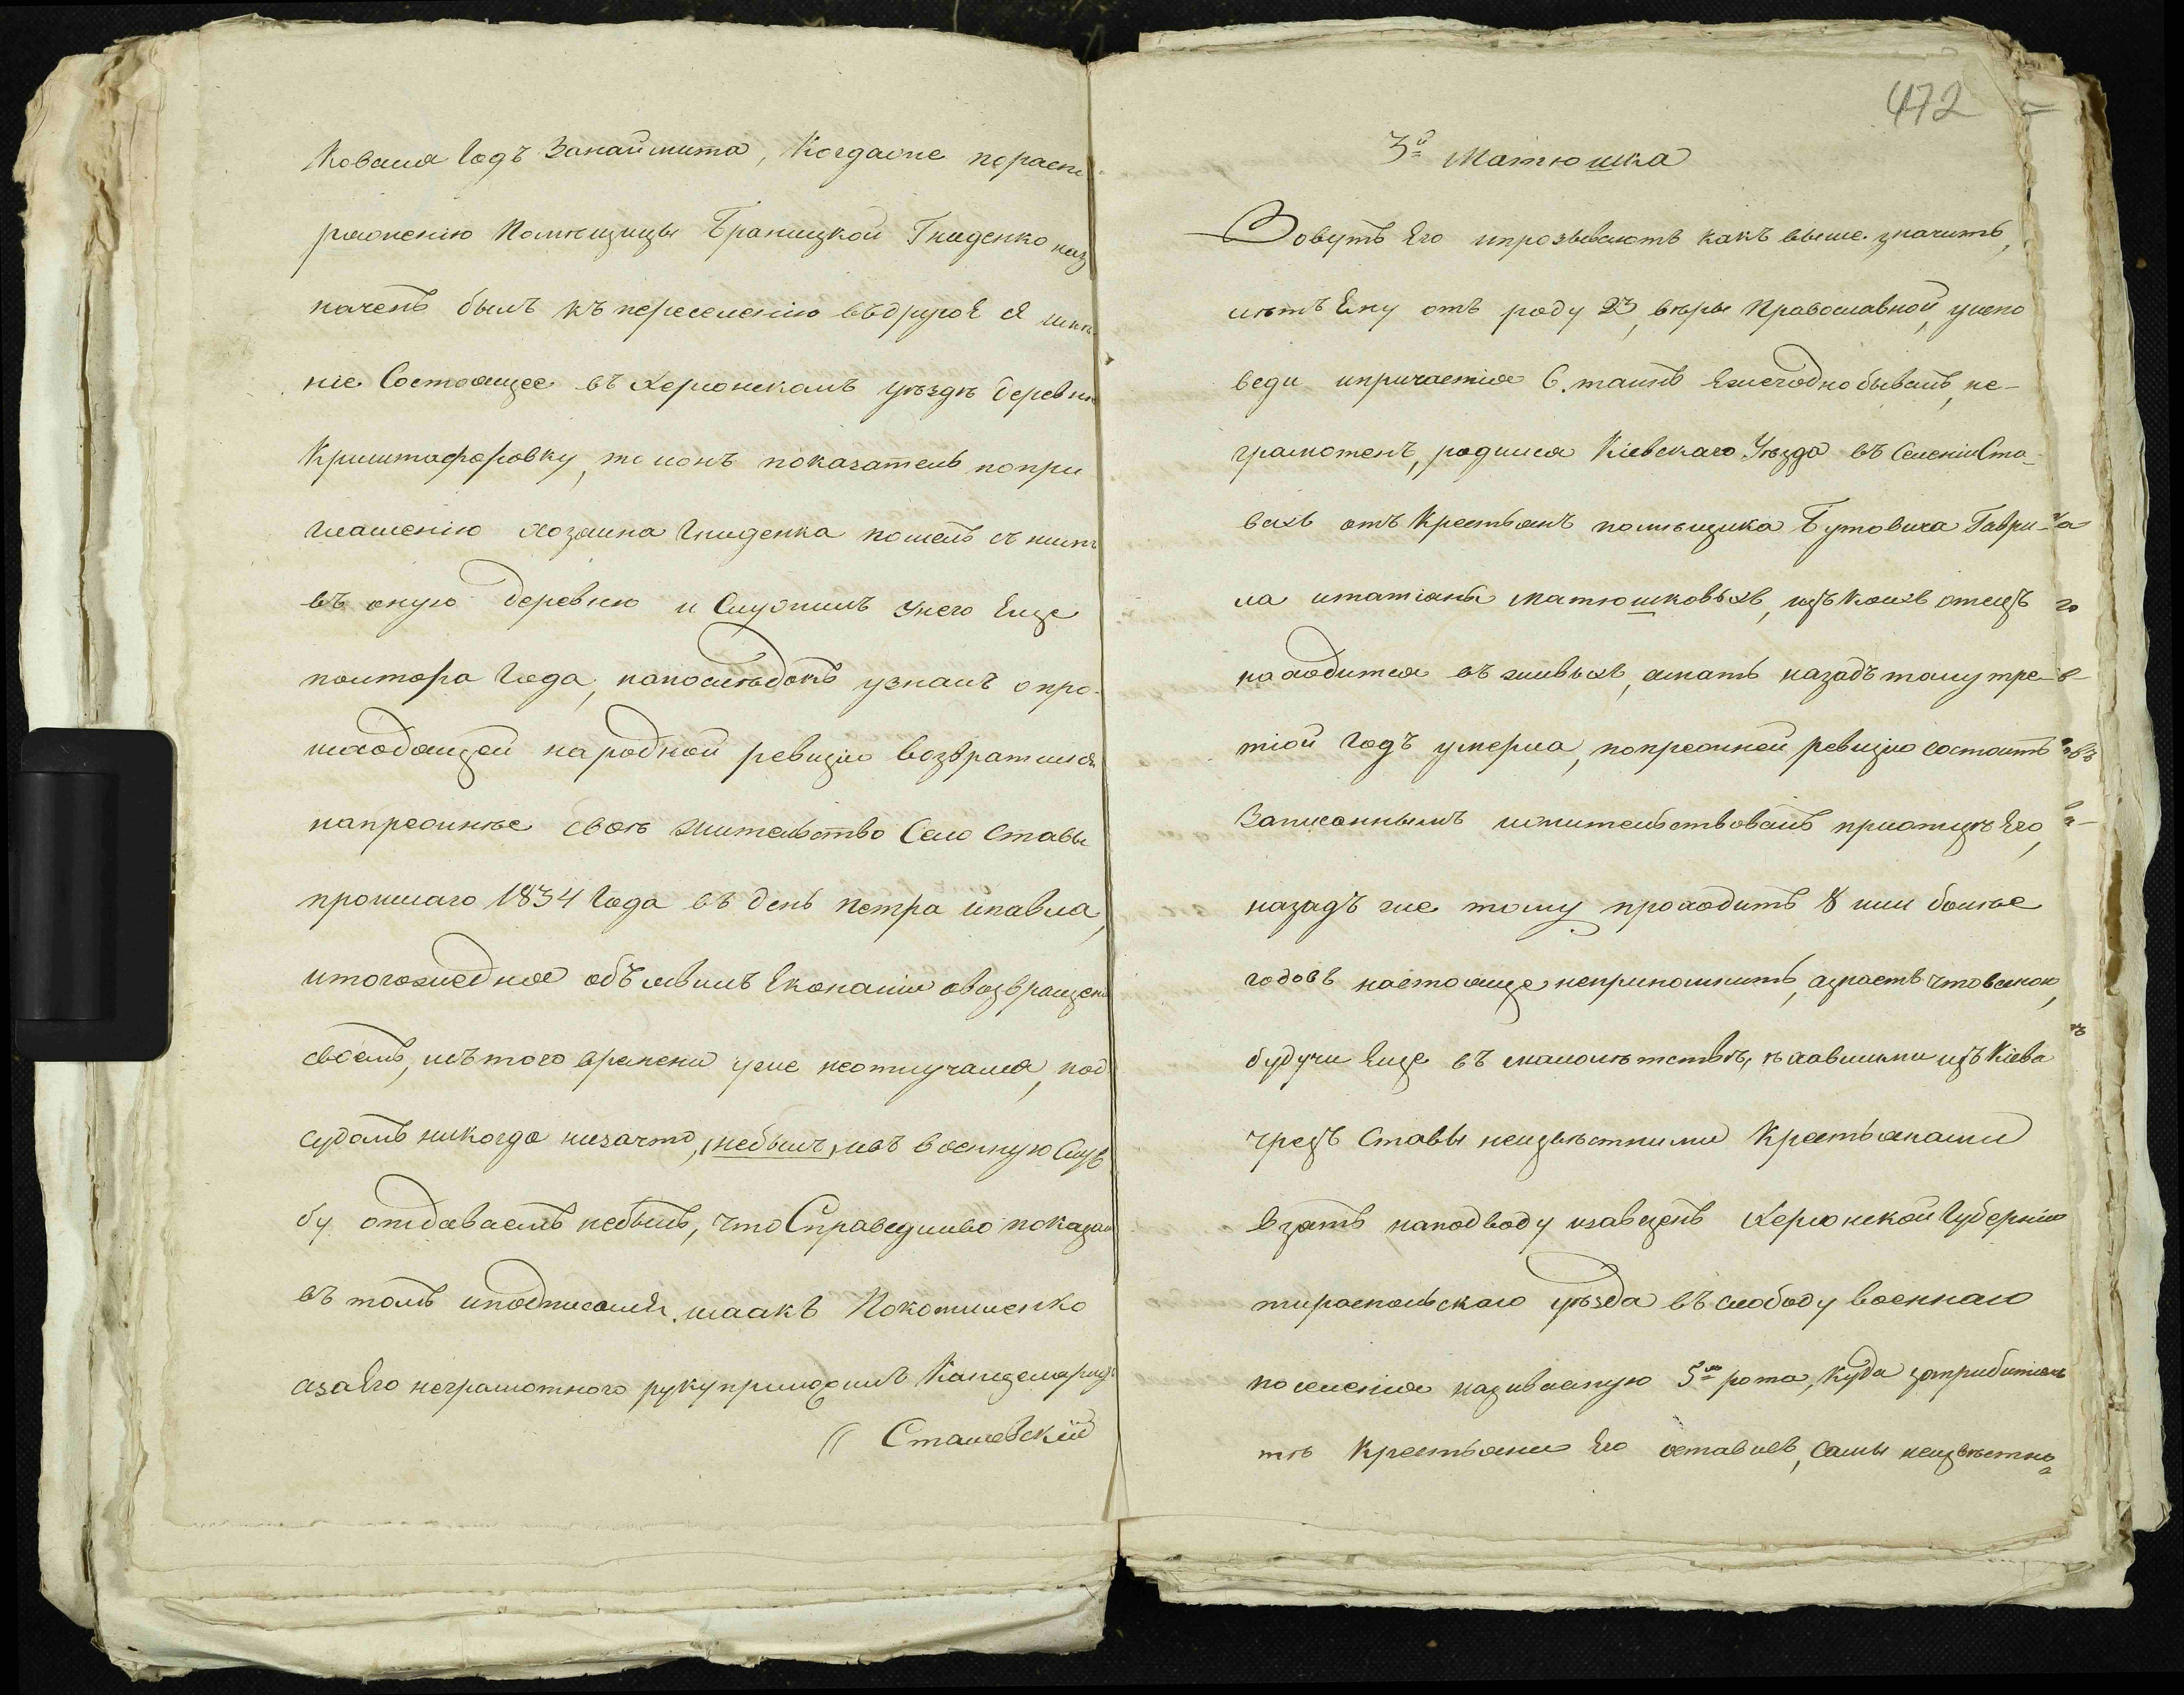 коваля годъ Занаймита, Когдаоне пораспо
ряженію Помѣщицы Браницкой Гниденко наз
наченъ былъ къ переселенію въдругоЕ Ея имѣ
ніе Состоящее въ Херсонскомъ уѣздѣ деревню
Криштафоровку, то ионъ показатель попри
глашенію хозяина Гниденка пошелъ съ нимъ
въ оную деревню и Служилъ унего Еще
полтора года, напослѣдокъ узналъ опро-
исходящей народной ревизіи возвратился
напрежнѣе своѣ жительство Село Ставы
прошлаго 1834 года въ день петра ипавла,
итогожедня объявилъ Економіи овозвращени
своемъ, исътого времени уже неотлучался, под
судомъ никогда низачто, небылъ, ивъ военную Служ
бу отдаваемъ небылъ, что Справедливо показалъ
въ томъ иподписался. Исаакъ Покотиленко
азаЕго неграмотного рукуприложилъ Канцеляристъ
Сташевскій
472
3й Матюшка
Зовутъ Его ипрозываютъ какъ выше. значитъ,
лѣтъ Ему отъ роду 23, вѣры Православной, уиспо
веди ипричастія С. таинъ Ежегодно бываетъ, не-
грамотенъ, родился Кіевскаго Уѣзда въ СеленіиСта-
вахъ отъ Крестьянъ помѣщика Бутовича Гаври-
ла итатіяны Матюшковыхъ, изъ Коихъ отецъ
находится въ живыхъ, амать назадъ тому тре-
тій годъ умерла, попрежней ревизіи состоитъ
Записаннымъ ижительствовалъ приотцѣ Его,
назадъ же тому проходитъ 8 или болѣе
годовъ настояще неприпомнитъ, азнаетъ что
будучи Еще въ малолѣтствѣ, ѣхавшими изъ Кіева
чрезъ Ставы неизвѣстними Крестьянами
взятъ наподводу изавезенъ Херсонской Губерніи
тираспольскаго уѣзда въ слободу военнаго
поселенія називаемую 5я рота, Куда заприбитіемъ
тѣ Крестьяни Его оставивъ, сами неизвѣстно